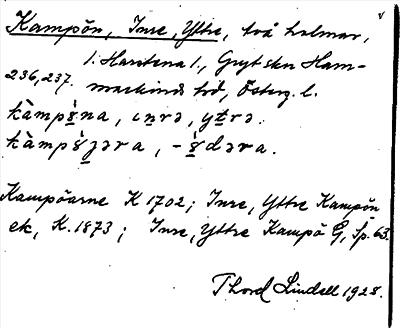 Kampön, Inre, Yttre, två holmar,
i. Harstena l., Gryt skn Ham-
236, 237. markinds hd, Österg. l.
kàmpø̀na, ınrə, ytrə.
kàmpø̀jəra, -ø̀dəra.
Kampöarne K 1702; Inre, Yttre Kampön
ek, K. 1873; Inre, Yttre Kampö G, Sp. 63.
Thord Lindell 1928.